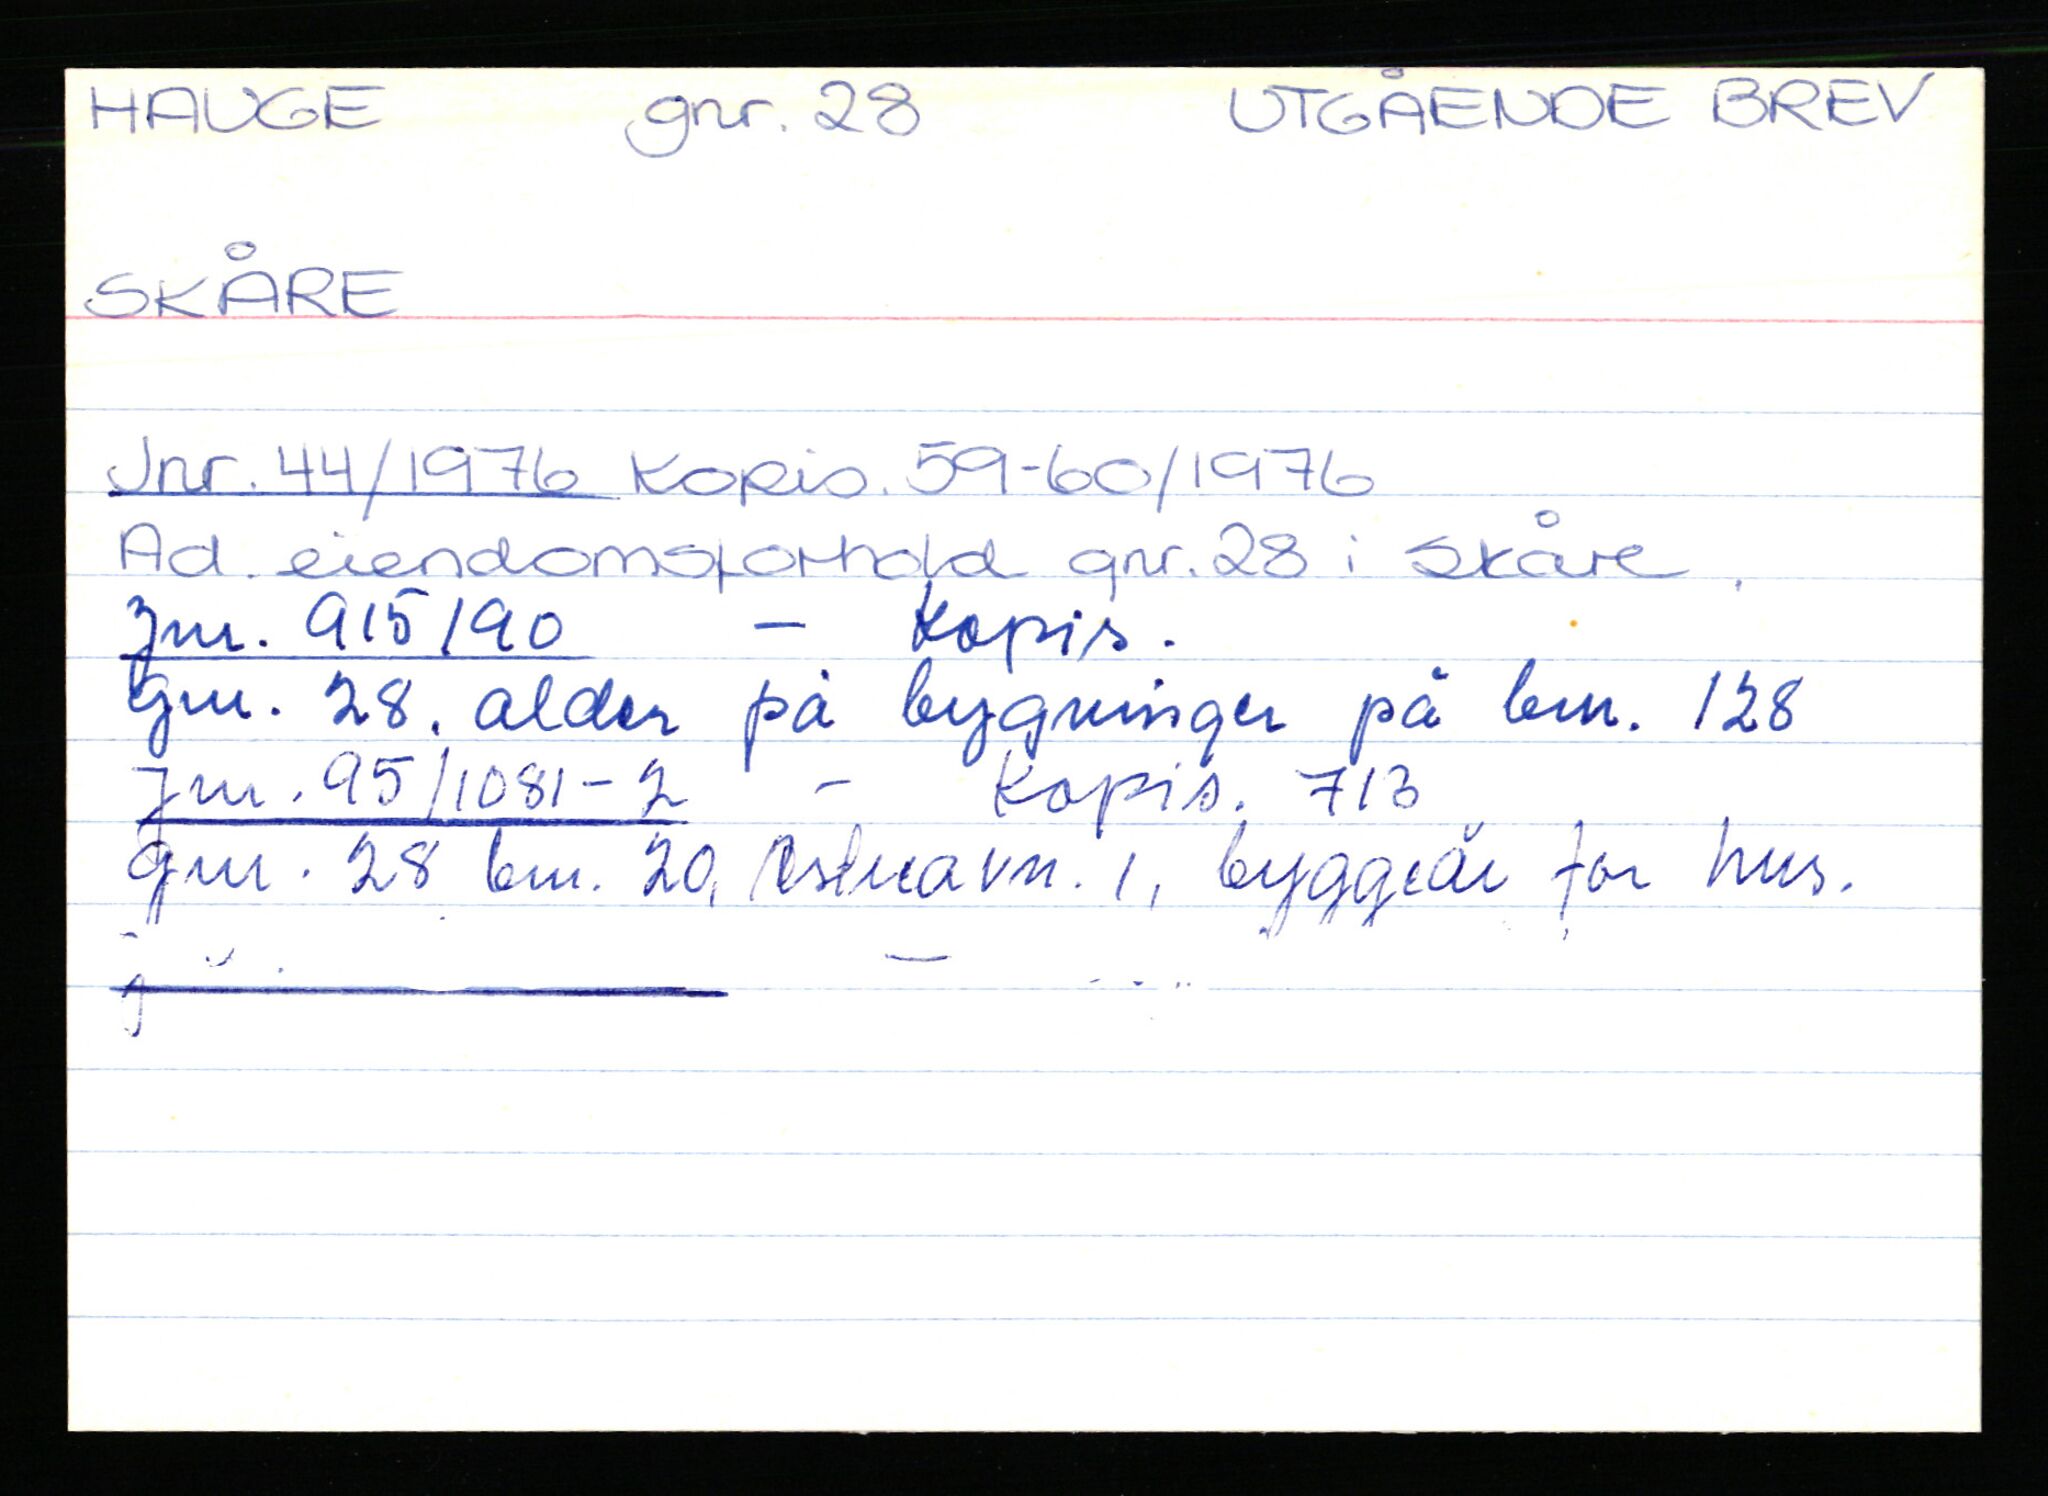 HAUGE gnr. 28 UTGÅENDE BREV
SKÅRE
Jnr. 44/1976 Kopis. 59-60/1976
Ad. eiendomsforhold gnr. 28 i Skåre.
Jnr. 915/90 - Kopis.
Gnr. 28. alder på bygninger på bnr. 128
Jnr. 95/1081-2 - Kopis. 713
gnr. 28 bnr. 20, 1, byggeår for hus.